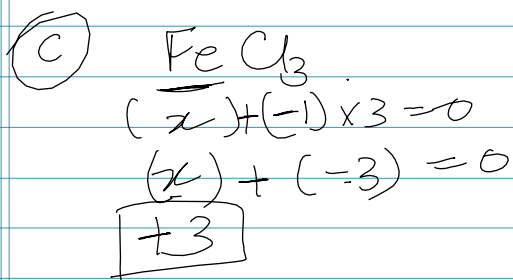 C FeCl₃
(x)+(-1)×3=0
(x)+(-3)=0
+3